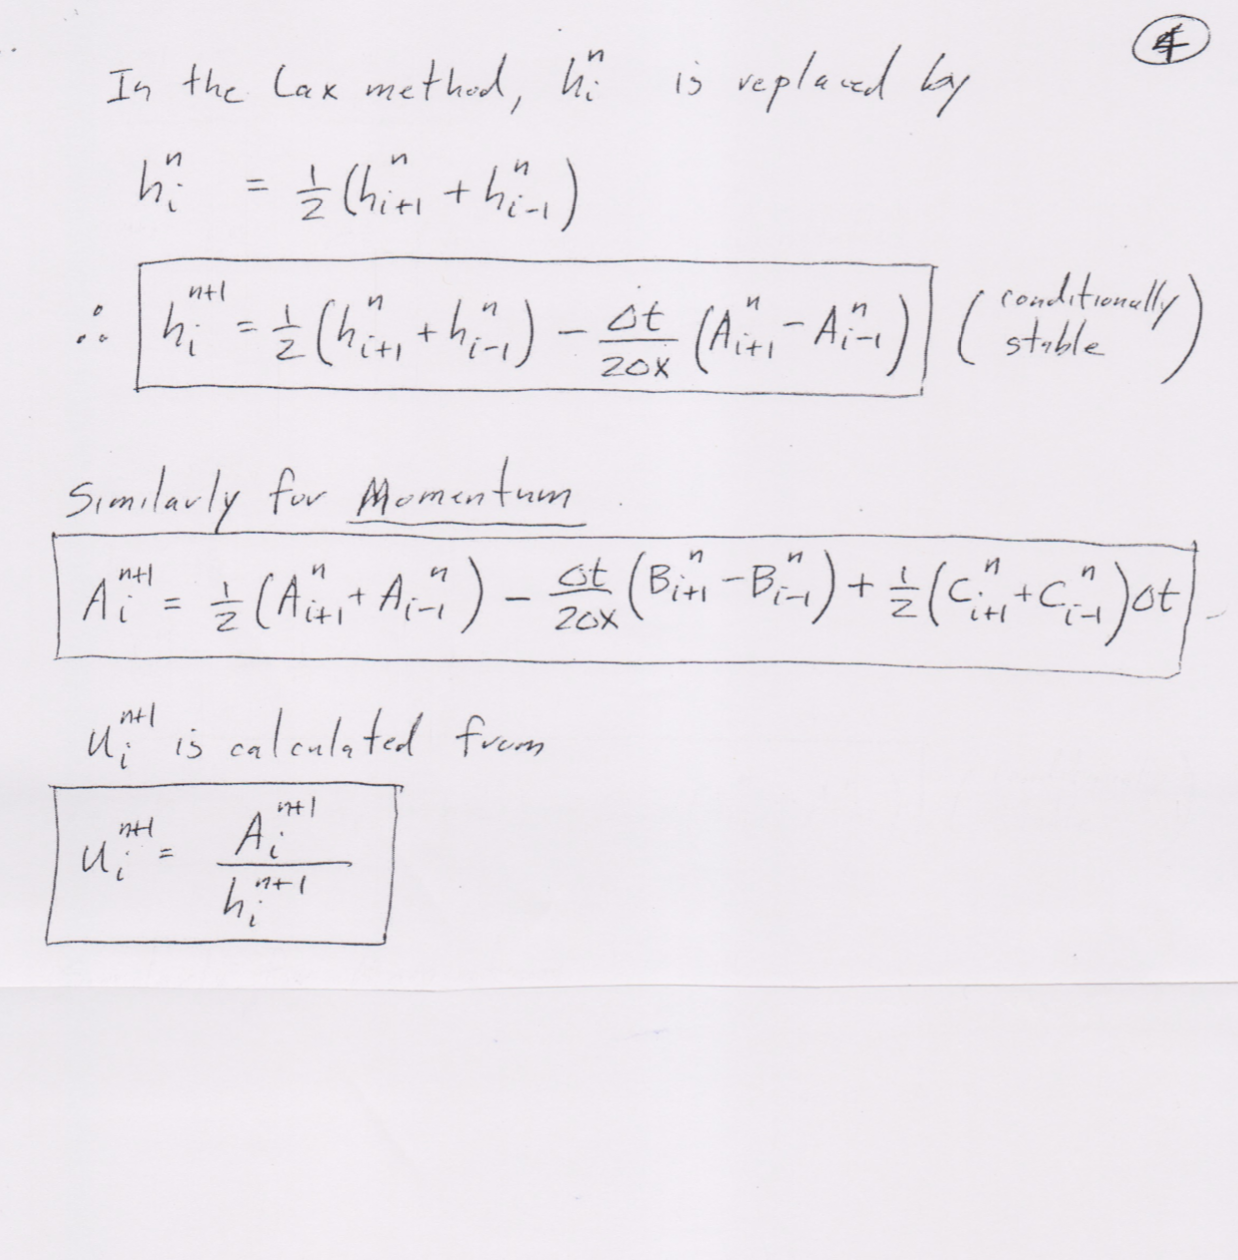 4
In the Lax method, h_i^n is replaced by
h_i^n = 1/2 (h_{i+1}^n + h_{i-1}^n)
∴ h_i^{n+1} = 1/2 (h_{i+1}^n + h_{i-1}^n) - Δt/2Δx (A_{i+1}^n - A_{i-1}^n) (conditionally stable)
Similarly for Momentum
A_i^{n+1} = 1/2 (A_{i+1}^n + A_{i-1}^n) - Δt/2Δx (B_{i+1}^n - B_{i-1}^n) + 1/2 (C_{i+1}^n + C_{i-1}^n) Δt
u_i^{n+1} is calculated from
u_i^{n+1} = A_i^{n+1} / h_i^{n+1}